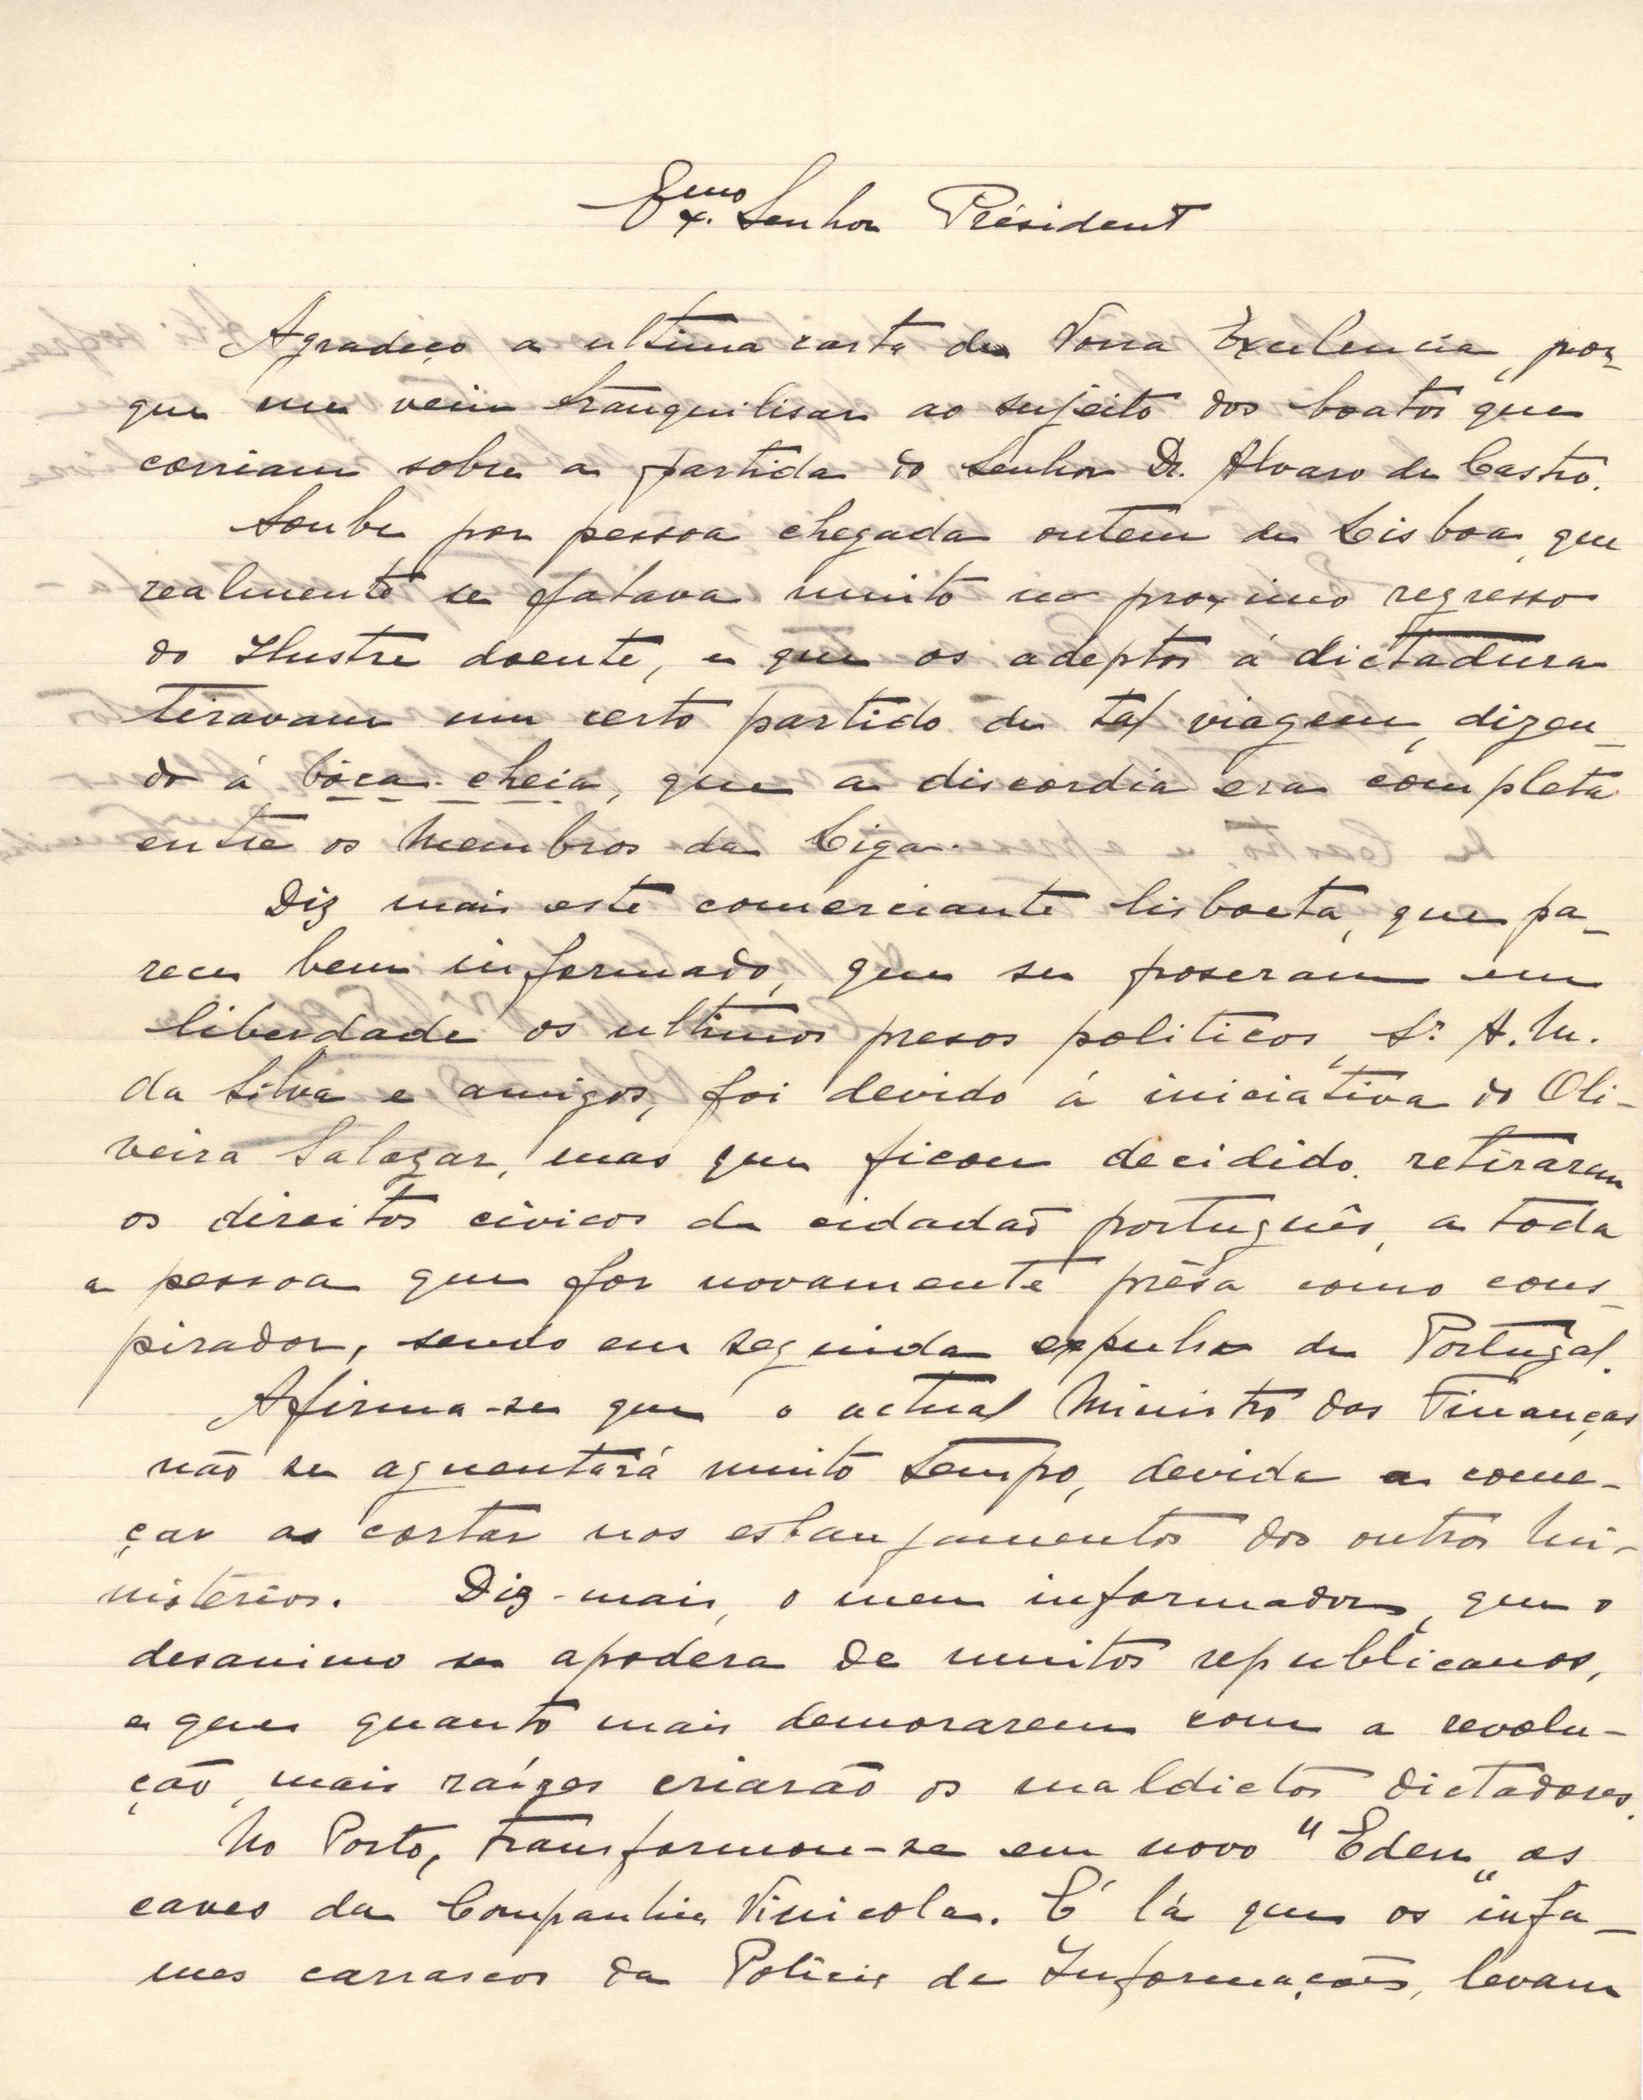 Exmo. Senhor Président
Agradeço a ultima carta de Vossa Exelencia, por-
que me veiu tranquilisar ao sujeito dos boatos que
corriam sobre a partida do Senhor Dr. Alvaro de Castro.
Soube por pessoa chegada ontem de Lisboa, que
realmente se falava muito no proximo regresso
do Ilustre doente, e que os adeptos á dictadura
tiravam um certo partido de tal viagem, dizen-
do á bôca cheia, que a discordia era completa
entre os Membros da Liga.
Diz mais este comerciante lisboeta, que pa-
rece bem informado, que se poseram em
liberdade os ultimos presos politicos, Sr. A. M.
da Silva e amigos, foi devido á iniciativa do Oli-
veira Salazar, mas que ficou decidido retirarem
os direitos civicos de cidadão português, a toda
a pessoa que for novamente prêsa como cons-
pirador, sendo em seguida expulso de Portugal.
Afirma-se que o actual Ministro das Finanças
não se aguentará muito tempo, devido a come-
çar a cortar nos esbanjamentos dos outros Mi-
nistérios. Diz-mais, o meu informador, que o
desanimo se apodera de muitos republicanos,
e que quanto mais demorarem com a revolu-
ção, mais raízes criarão os maldictos dictadores.
No Porto, transformou-se em novo "Eden" as
caves da Companhia Vinicola. É lá que os infa-
mes carrascos da Policia de Informações, levam